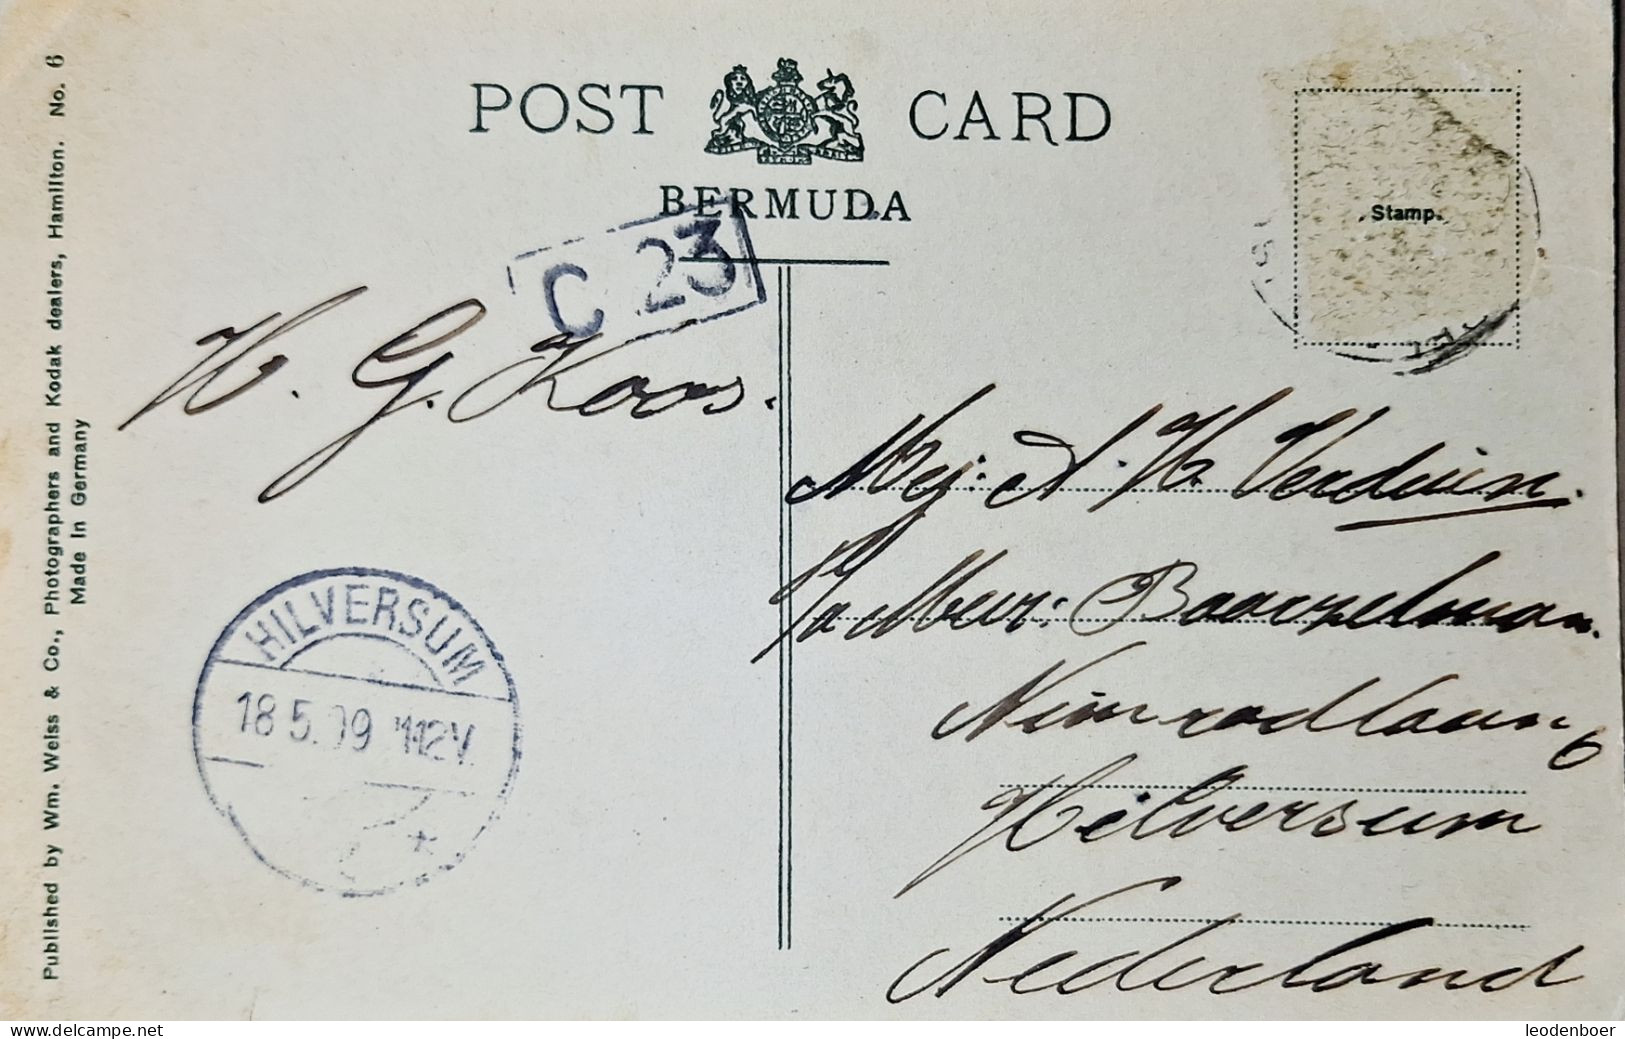 POST CARD
BERMUDA
Stamp.
C 23
H. G. Koos.
Mej: A. H. Verduin.
p/a Mevr: Baarselman.
Nimrodlaan 6
Hilversum
Nederland
HILVERSUM
18 5.09 11-12V.
Published by Wm. Weiss & Co., Photographers and Kodak dealers, Hamilton. No. 6
Made In Germany
www.delcampe.net
leodenboer